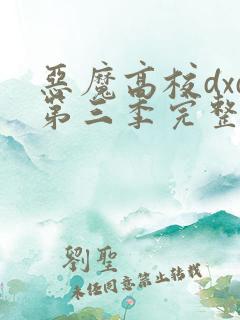 惡魔高校dx
第三季完整
劉聖
未经同意禁止转载